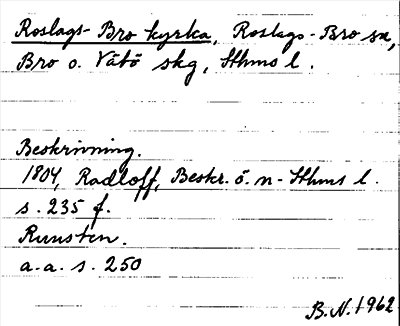 Roslags-Bro kyrka, Roslags-Bro sn,
Bro o. Vätö skg, Sthms l.
Beskrivning.
1804, Radloff, Beskr. ö. n-Sthms l.
s. 235 f.
Runsten.
a.a. s. 250
B.N. 1962